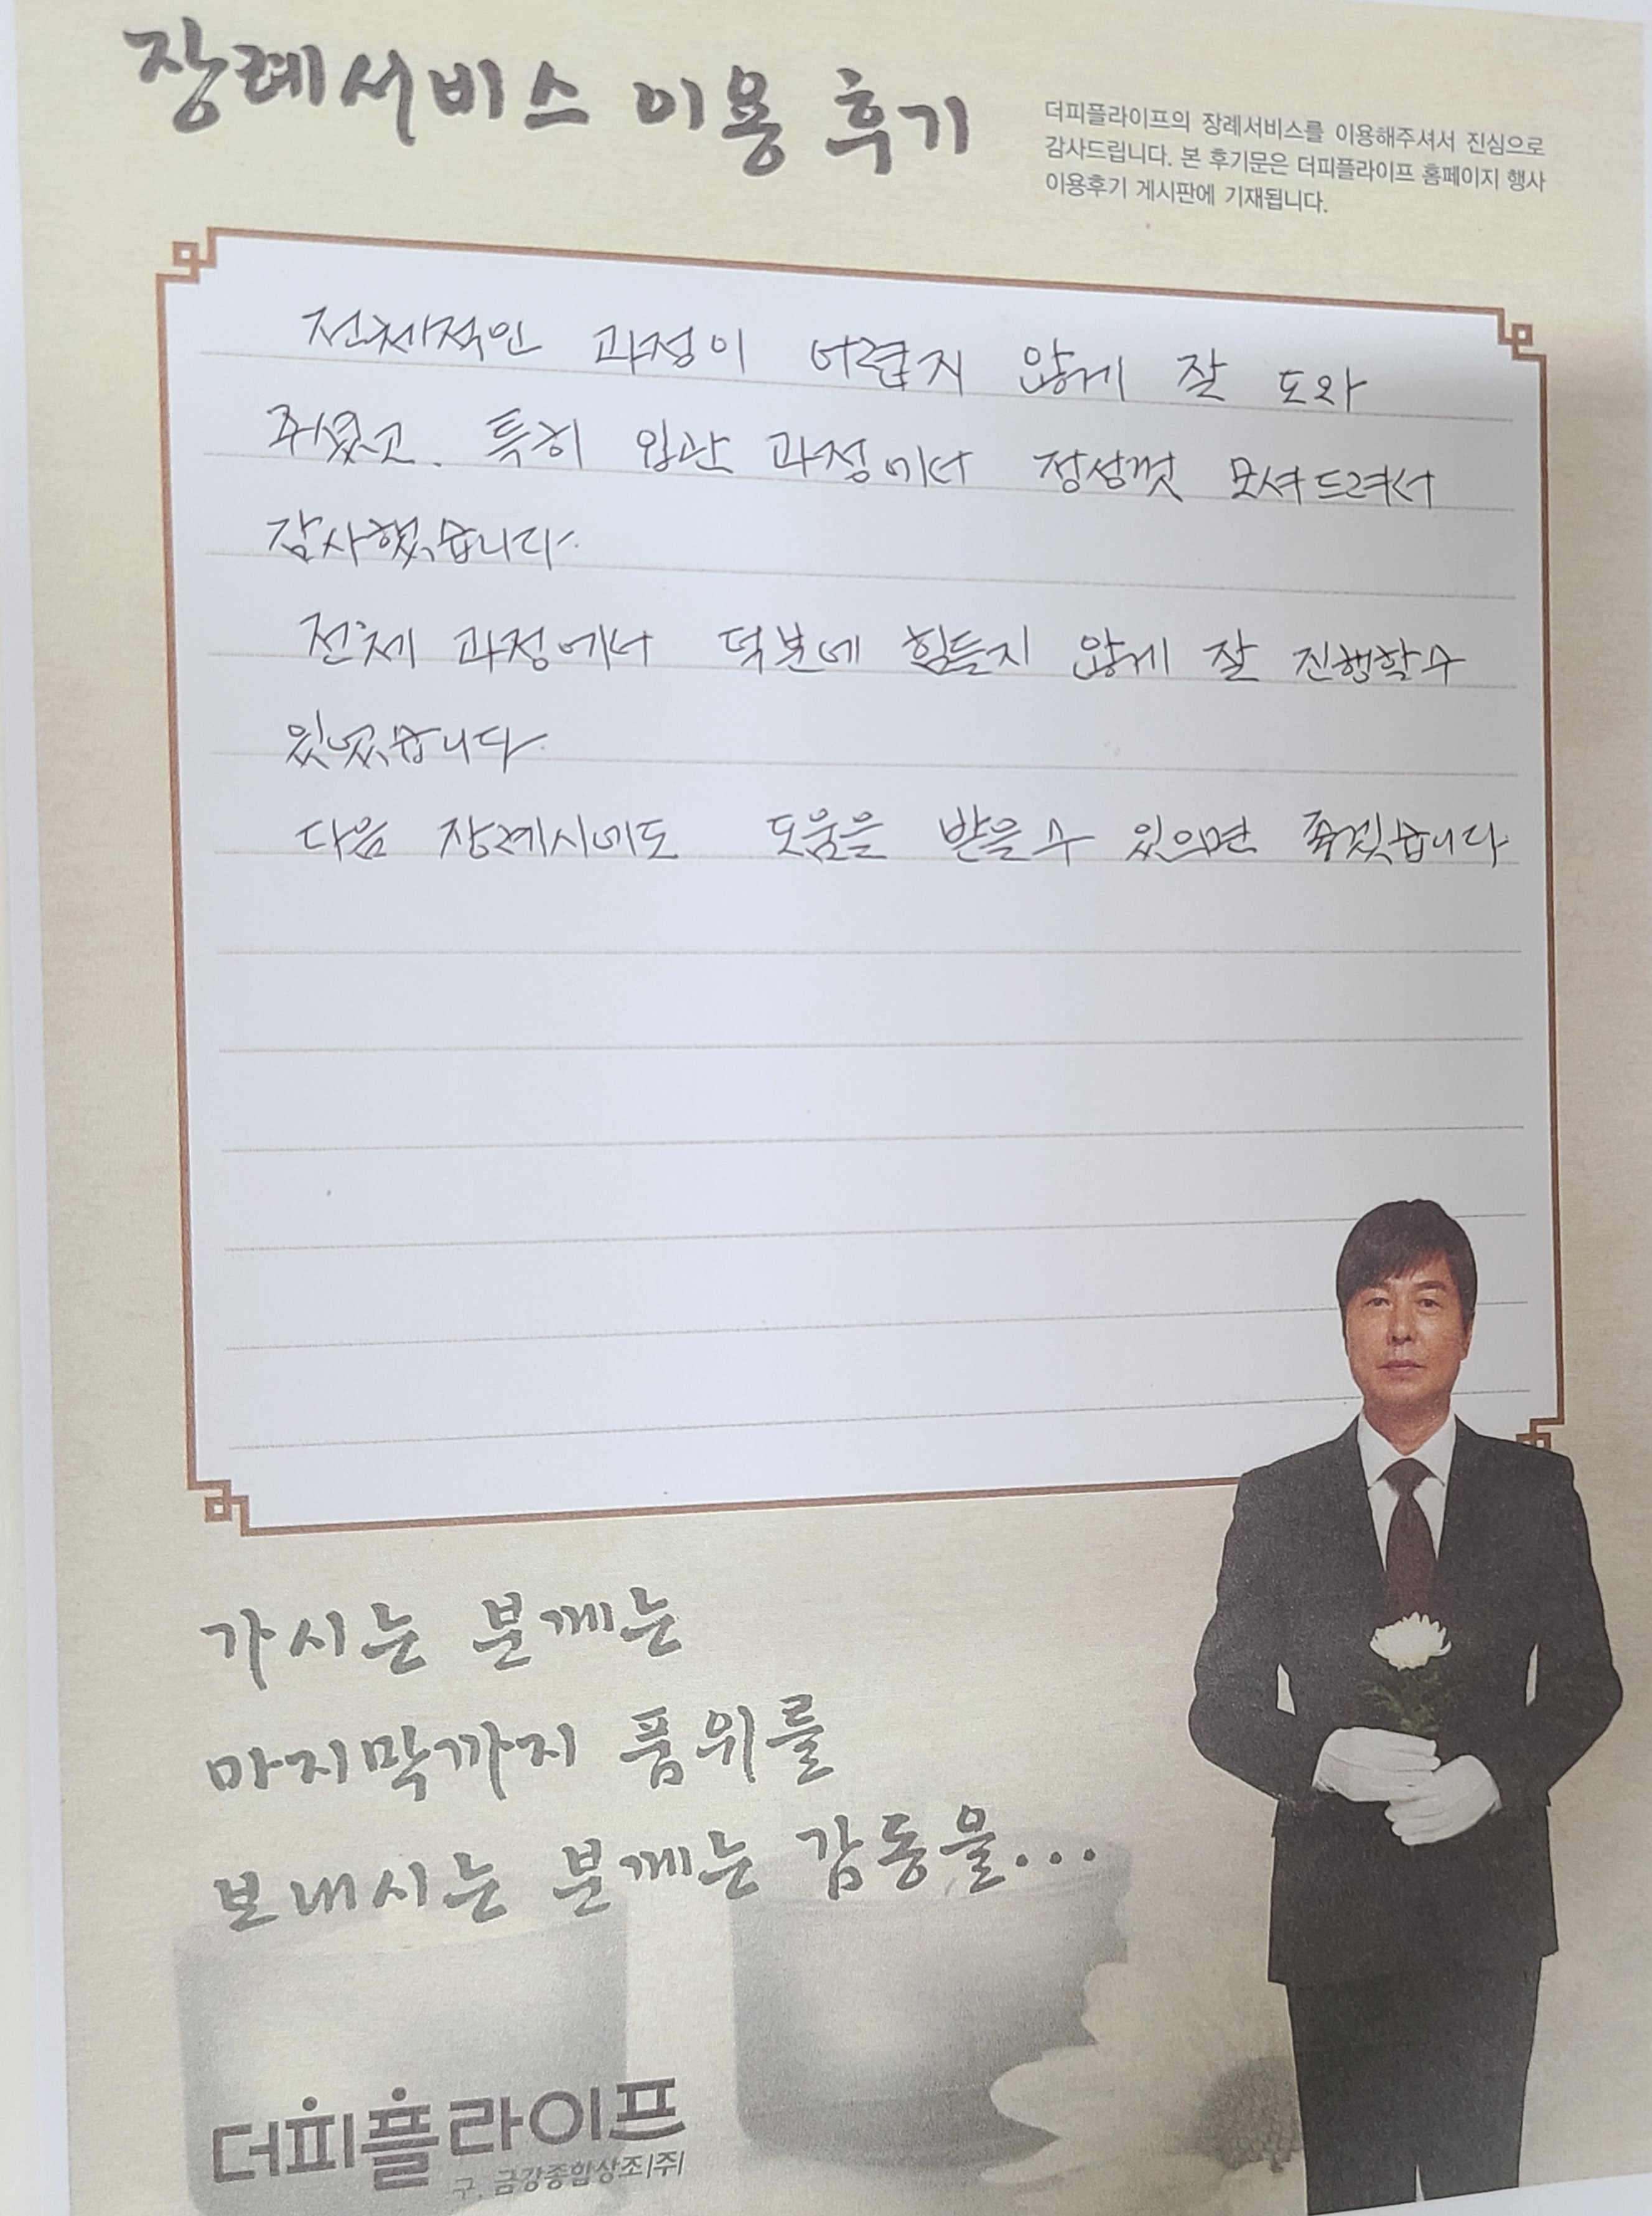 장례서비스 이용 후기
더피플라이프의 장례서비스를 이용해주셔서 진심으로
감사드립니다. 본 후기문은 더피플라이프 홈페이지 행사
이용후기 게시판에 기재됩니다.
전체적인 과정이 어렵지 않게 잘 도와
주셨고. 특히 입관 과정에서 정성껏 모셔드려서
감사했습니다.
전체 과정에서 덕분에 힘들지 않게 잘 진행할수
있었습니다.
다음 장례시에도 도움을 받을수 있으면 좋겠습니다
가시는 분께는
마지막까지 품위를
보내시는 분께는 감동을...
더피플라이프
구. 금강종합상조(주)